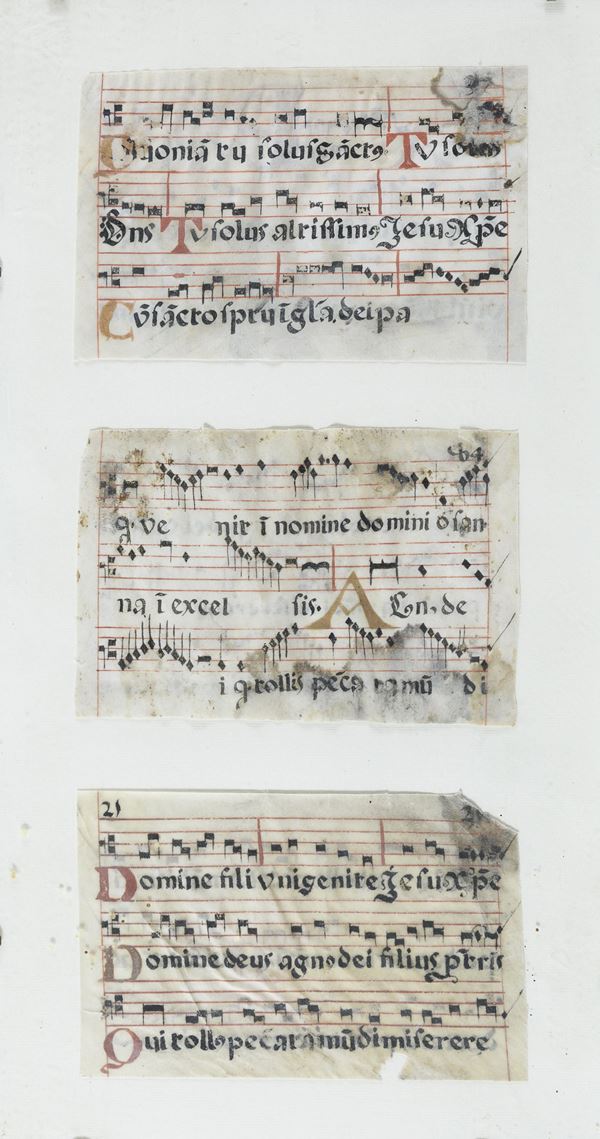 Quoniā tu solus sāctꝯ Tu solus
Dns Tu solus altissimꝯ Jesu Xp̄e
Cū sācto spū ī gl̄a dei pa
64
q ve nit ī nomine domini o san
na ī excel sis. A Gnꝯ de
i q tollis pēca ta mū di
21
Domine fili vnigenite Jesu Xp̄e
Domine deus agnꝯ dei filius p̄tris
Qui tollꝭ pēcata mūdi miserere